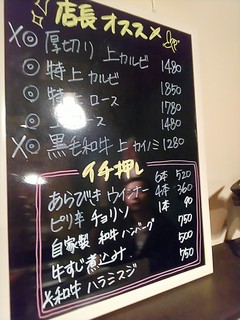 店長オススメ
X◎ 厚切り 上カルビ
◎ 特上カルビ 1480
◎ 特 ロース 1850
◎ ロース 1780
X◎ 黒毛和牛 上カイノミ 1480
1280
イチ押し
あらびきウインナー 6本 520
4本 360
ピリ辛 チョリソ 1本 90
自家製 和牛ハンバーグ 750
牛すじ煮込み 500
X和牛 ハラミスジ 750